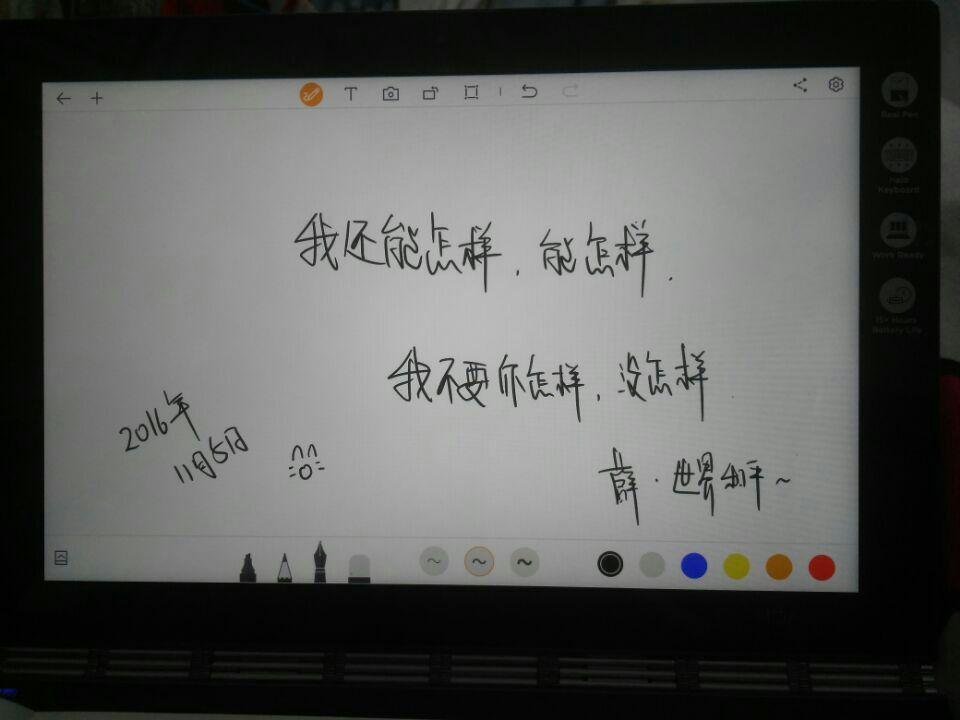 T
Real Pen
Halo
Keyboard
Work Ready
15+ Hours
Battery Life
我还能怎样，能怎样.
我不要你怎样，没怎样
2016年
11月5日
薛·世界和平~